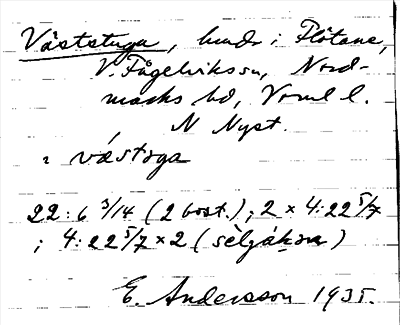 Väststuga, hundr i Flötane,
V. Fågelviks sn, Nord-
marks hd, Vrml l.
N Nyst.
västoga
22:6 3/14 (2 bost.); 2 x 4:22 5/7
; 4:22 5/7 x 2 (
E. Andersson 1935.